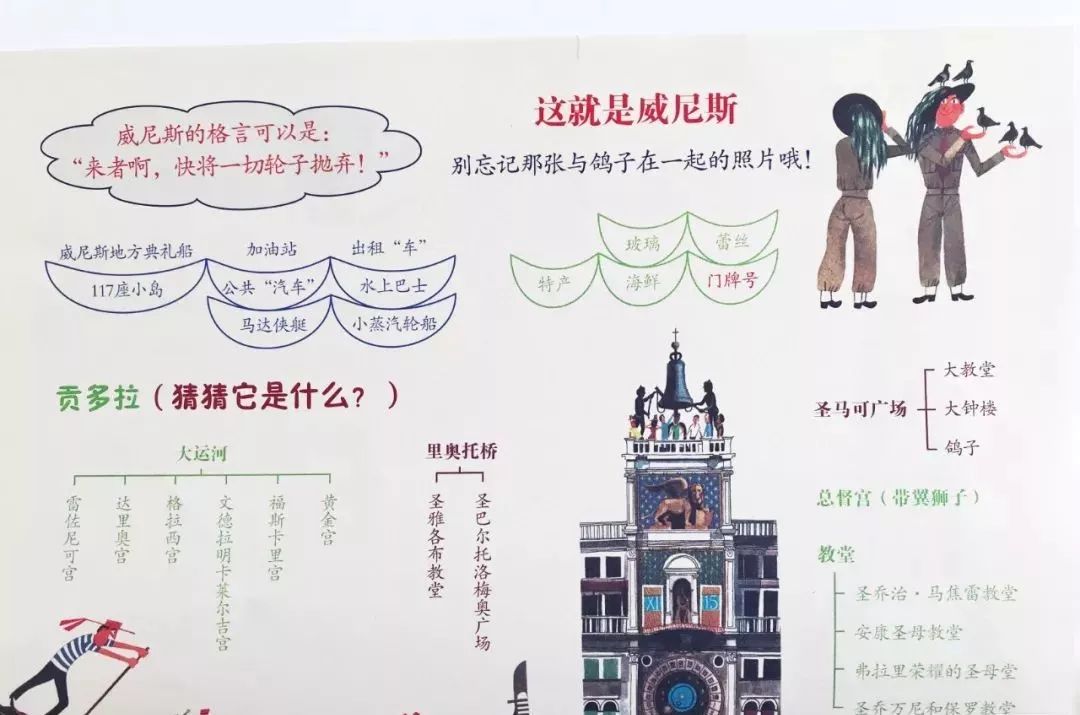 威尼斯的格言可以是：
“来者啊，快将一切轮子抛弃！”
这就是威尼斯
别忘记那张与鸽子在一起的照片哦！
威尼斯地方典礼船
加油站
出租“车”
117座小岛
公共“汽车”
水上巴士
马达侠艇
小蒸汽轮船
玻璃
蕾丝
特产
海鲜
门牌号
贡多拉（猜猜它是什么？）
大运河
雷佐尼可宫
达里奥宫
格拉西宫
文德拉明卡莱尔吉宫
福斯卡里宫
黄金宫
里奥托桥
圣雅各布教堂
圣巴尔托洛梅奥广场
XI
15
圣马可广场
大教堂
大钟楼
鸽子
总督宫（带翼狮子）
教堂
圣乔治·马焦雷教堂
安康圣母教堂
弗拉里荣耀的圣母堂
圣乔万尼和保罗教堂